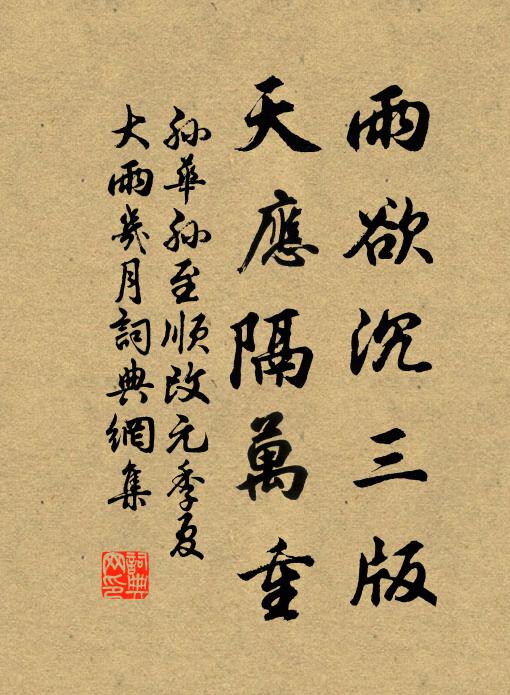 雨欲沉三版
天應隔萬重
孫華孫至順改元季夏
大雨幾月詞典網集
詞典網印